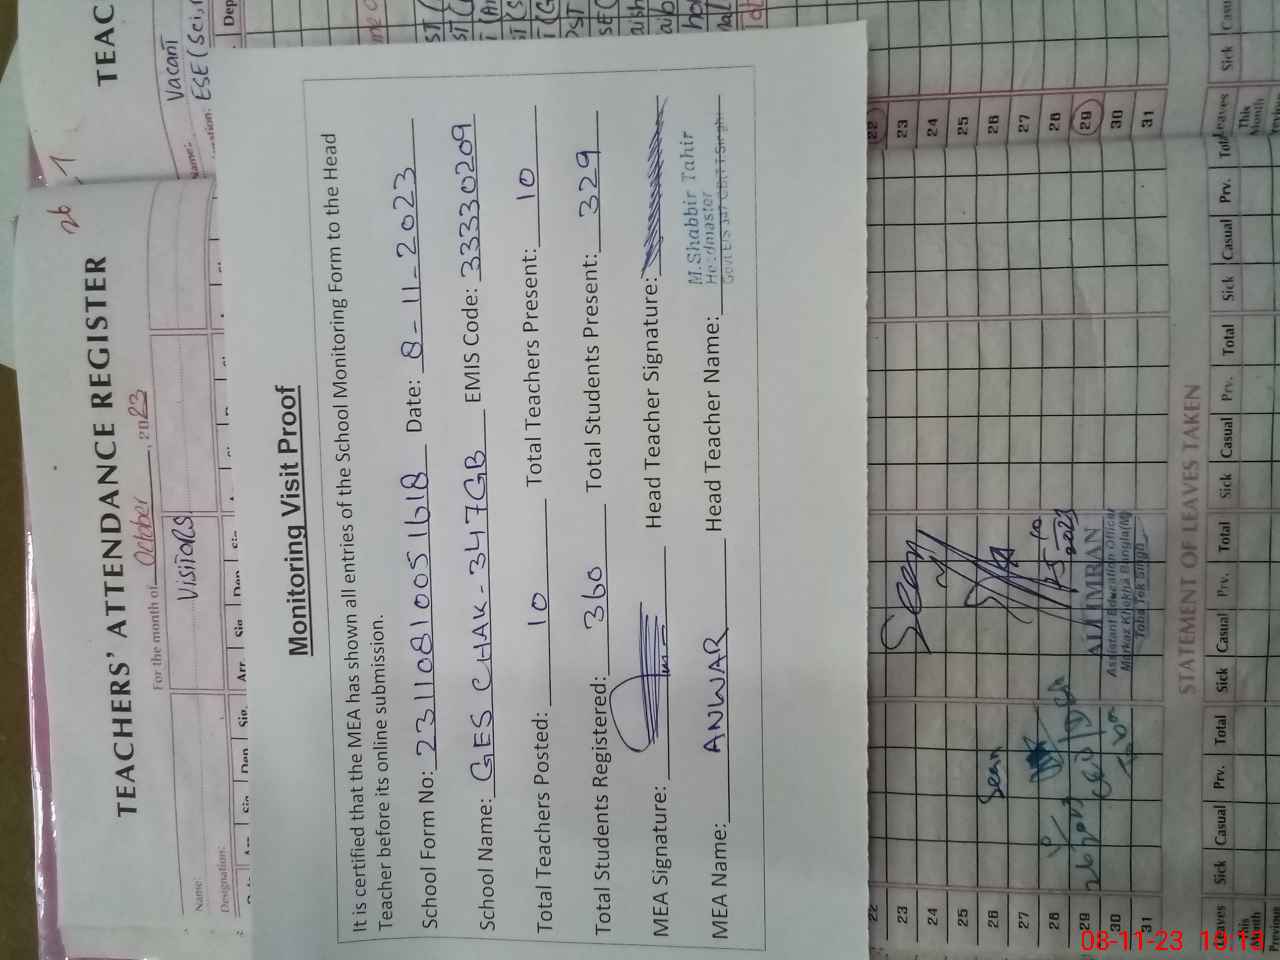 TEACHERS' ATTENDANCE REGISTER
26
For the month of October, 2023
Name:
VISITORS
Designation:
TEAC
Vacant
ESE (Sci,
Monitoring Visit Proof
It is certified that the MEA has shown all entries of the School Monitoring Form to the Head
Teacher before its online submission.
School Form No: 23110810051618 Date: 8-11-2023
School Name: GES CHAK-347GB EMIS Code: 33330209
Total Teachers Posted: 10 Total Teachers Present: 10
Total Students Registered: 360 Total Students Present: 329
MEA Signature: Head Teacher Signature:
MEA Name: ANWAR Head Teacher Name: M. Shabbir Tahir
Headmaster
22
23
24
25
26
27
28
29
30
31
Seen
Seen
ALI IMRAN
Assistant Education Officer
Markaz Khekha Bangla(M)
Toba Tek Singh
22
23
24
25
26
27
28
29
30
31
STATEMENT OF LEAVES TAKEN
Leaves Sick Casual Prv. Total Sick Casual Prv. Total Sick Casual Prv. Total Sick Casual Prv. Total Leaves Sick
This Month
This Month
08-11-23 10:13